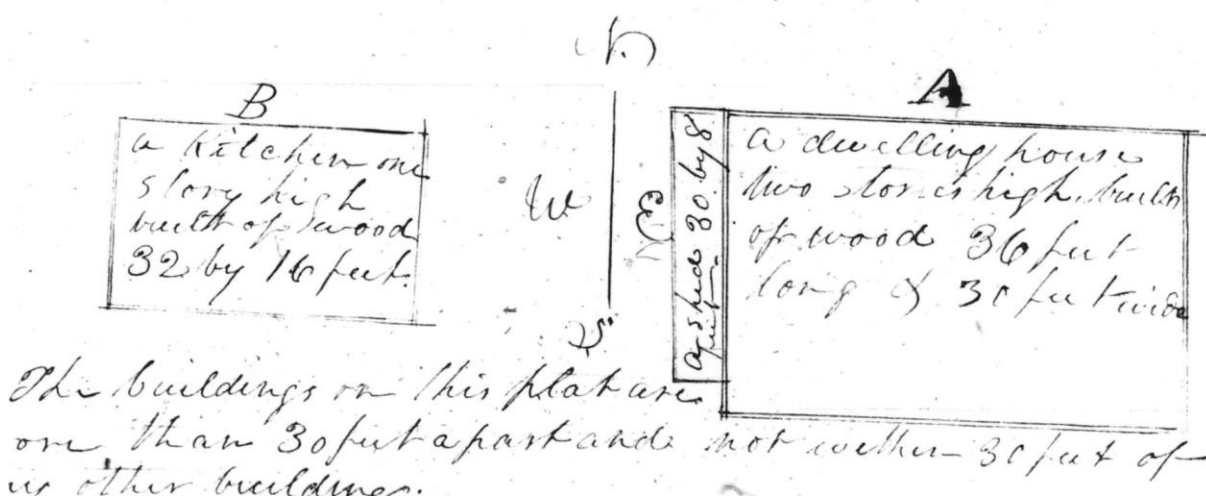 N.
B
a Kitchen one
story high
built of wood
32 by 16 feet.
W
E
S
A
a shed 30 by 8
feet
a dwelling house
two stories high built
of wood 36 feet
long & 30 feet wide
The buildings on this plat are
ore than 30 feet apart and not within 30 feet of
other buildings.